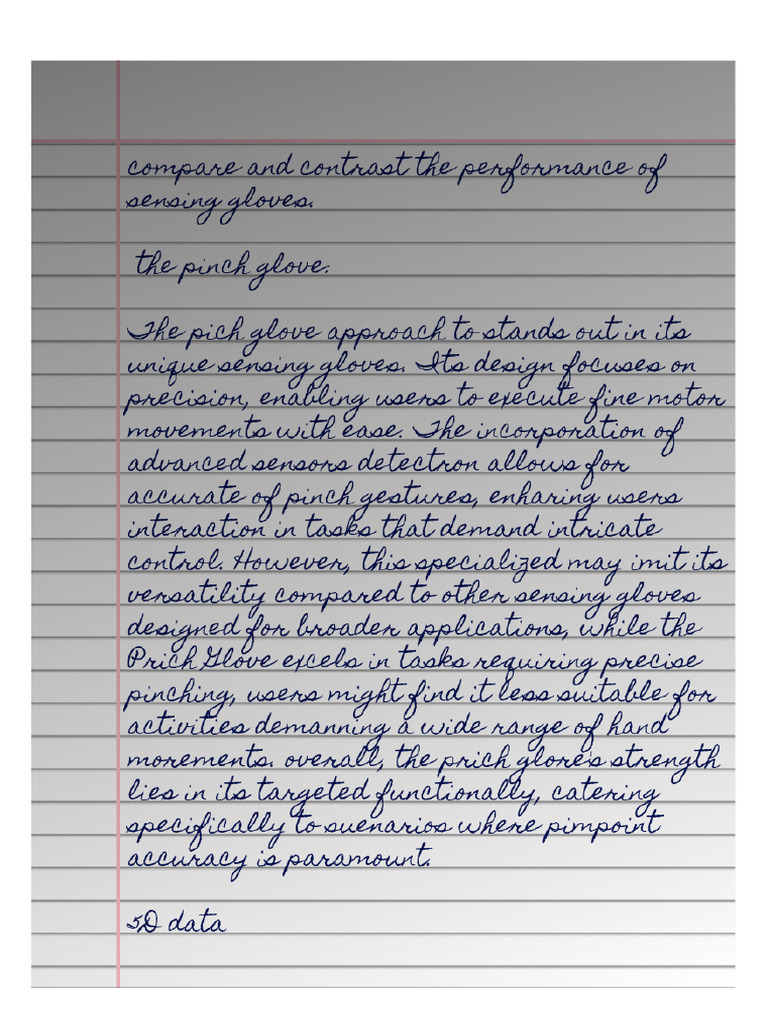 compare and contrast the performance of
sensing gloves.
the pinch glove.
The pich glove approach to stands out in its
unique sensing gloves. Its design focuses on
precision, enabling users to execute fine motor
movements with ease. The incorporation of
advanced sensors detectron allows for
accurate of pinch gestures, enharing users
interaction in tasks that demand intricate
control. However, this specialized may imit its
versatility compared to other sensing gloves
designed for broader applications, while the
Prich Glove excels in tasks requiring precise
pinching, users might find it less suitable for
activities demanning a wide range of hand
morements. overall, the prich glore's strength
lies in its targeted functionally, catering
specifically to suenarios where pimpoint
accuracy is paramount.
5D data